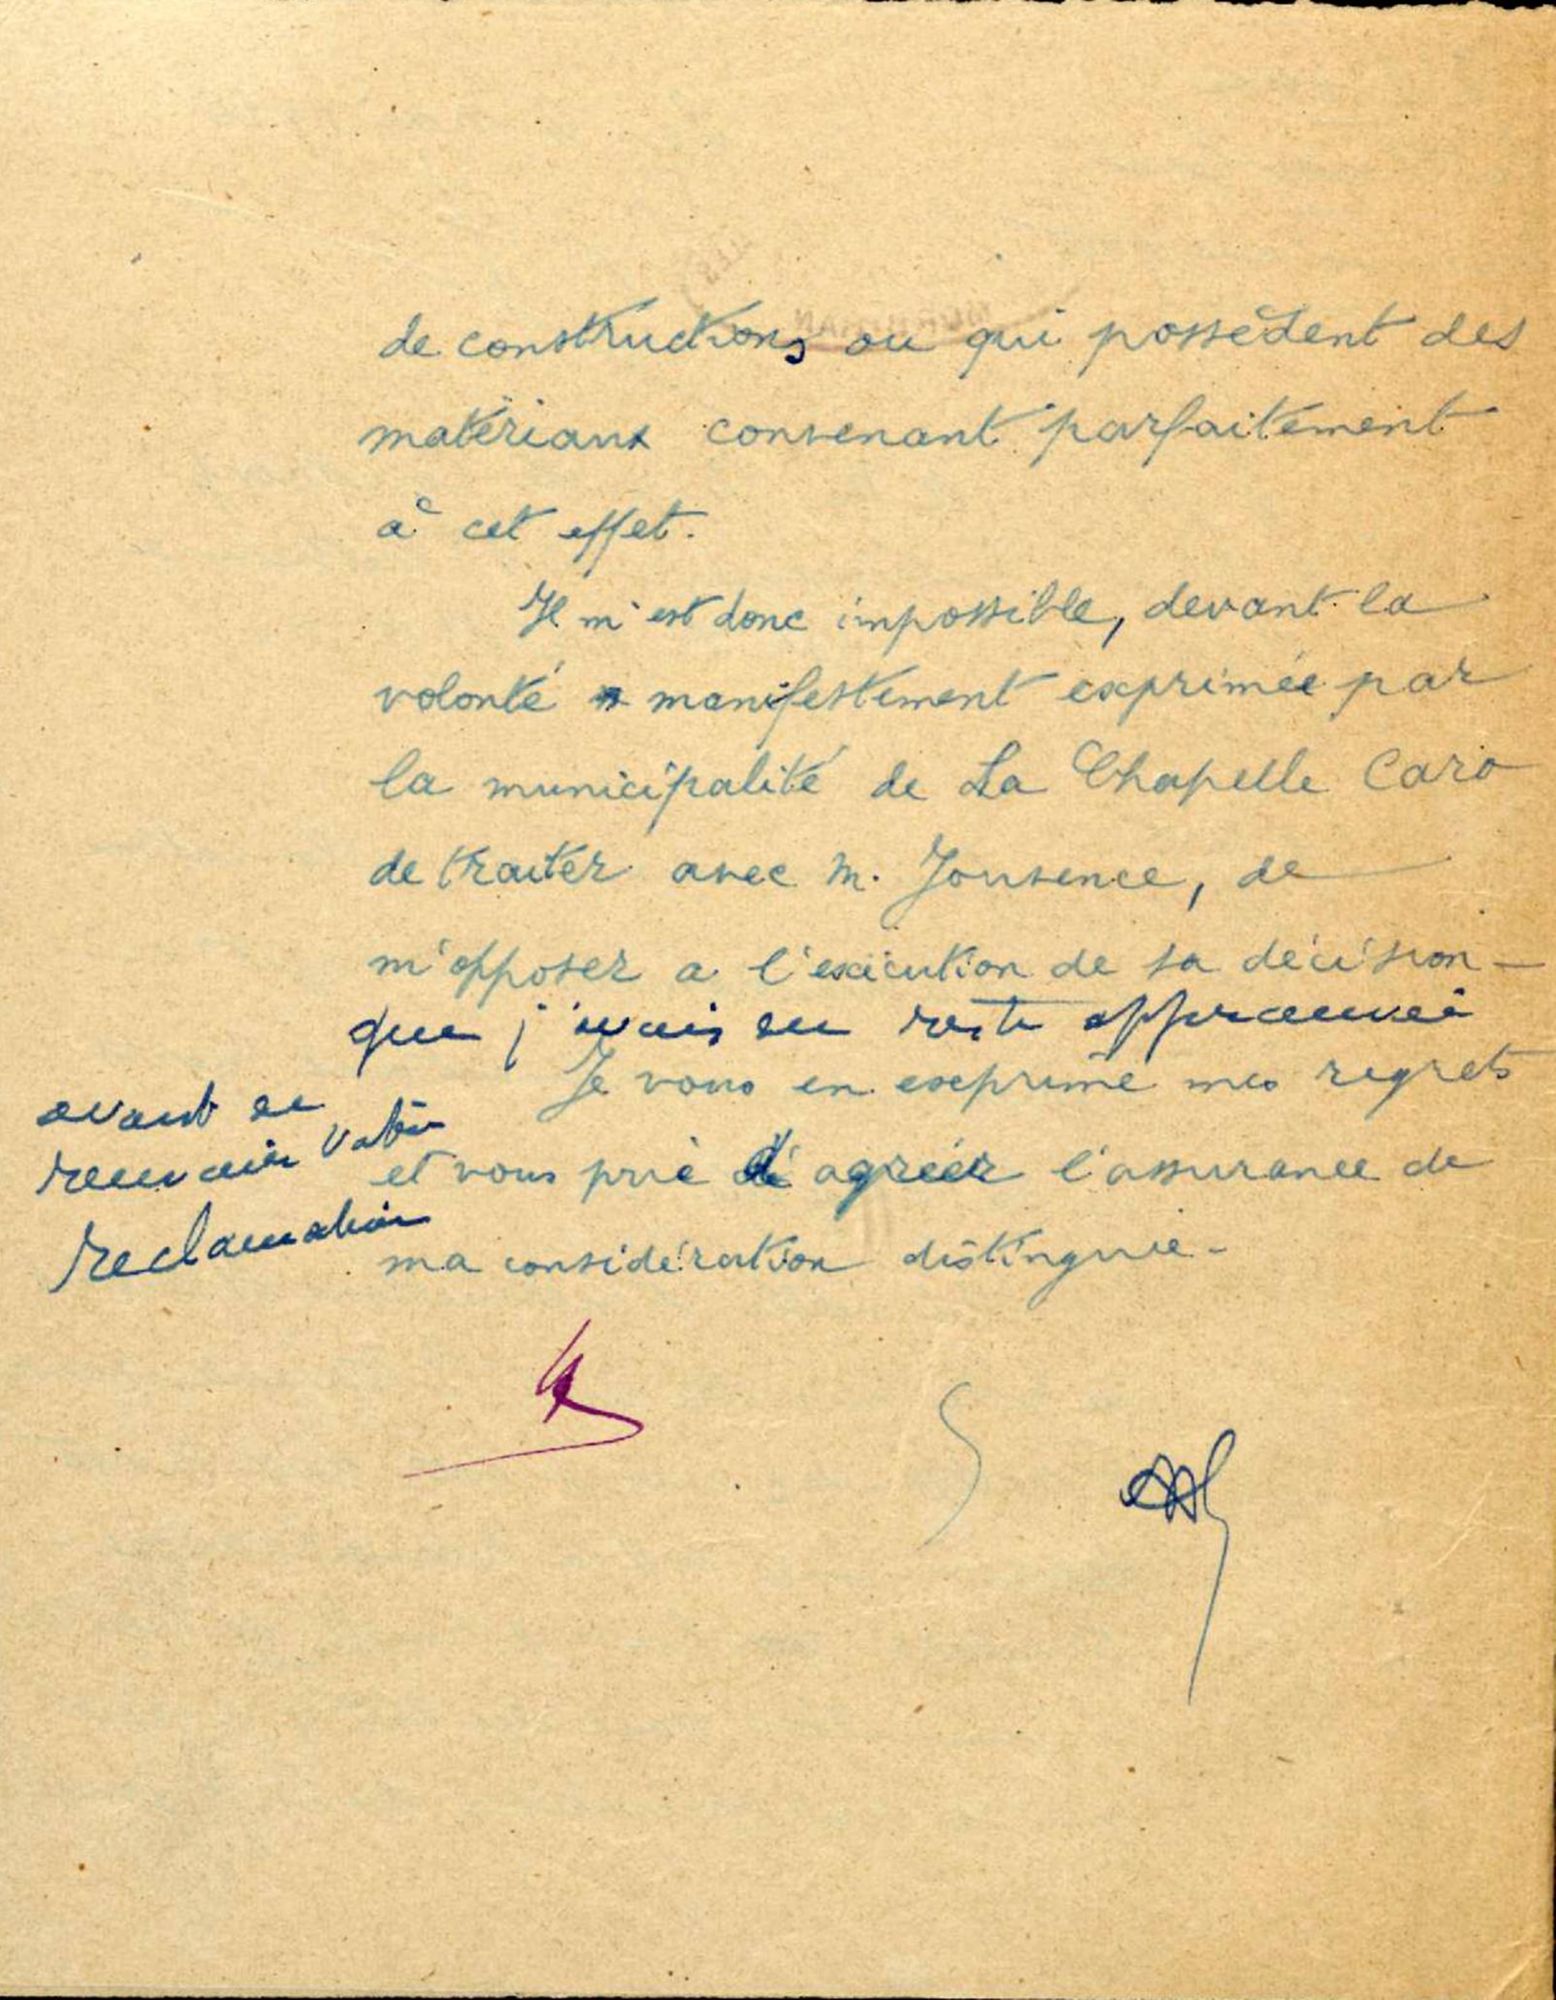 de constructions ou qui possèdent des
matériaux convenant parfaitement
à cet effet.
Il m'est donc impossible, devant la
volonté manifestement exprimée par
la municipalité de La Chapelle Caro
de traiter avec M. Jouvence, de
m'opposer a l'exécution de sa décision
que j'avais du reste approuvée
avant de
recevoir votre
reclamation
Je vous en exprime mes regrets
et vous prie d'agréer l'assurance de
ma considération distinguée.